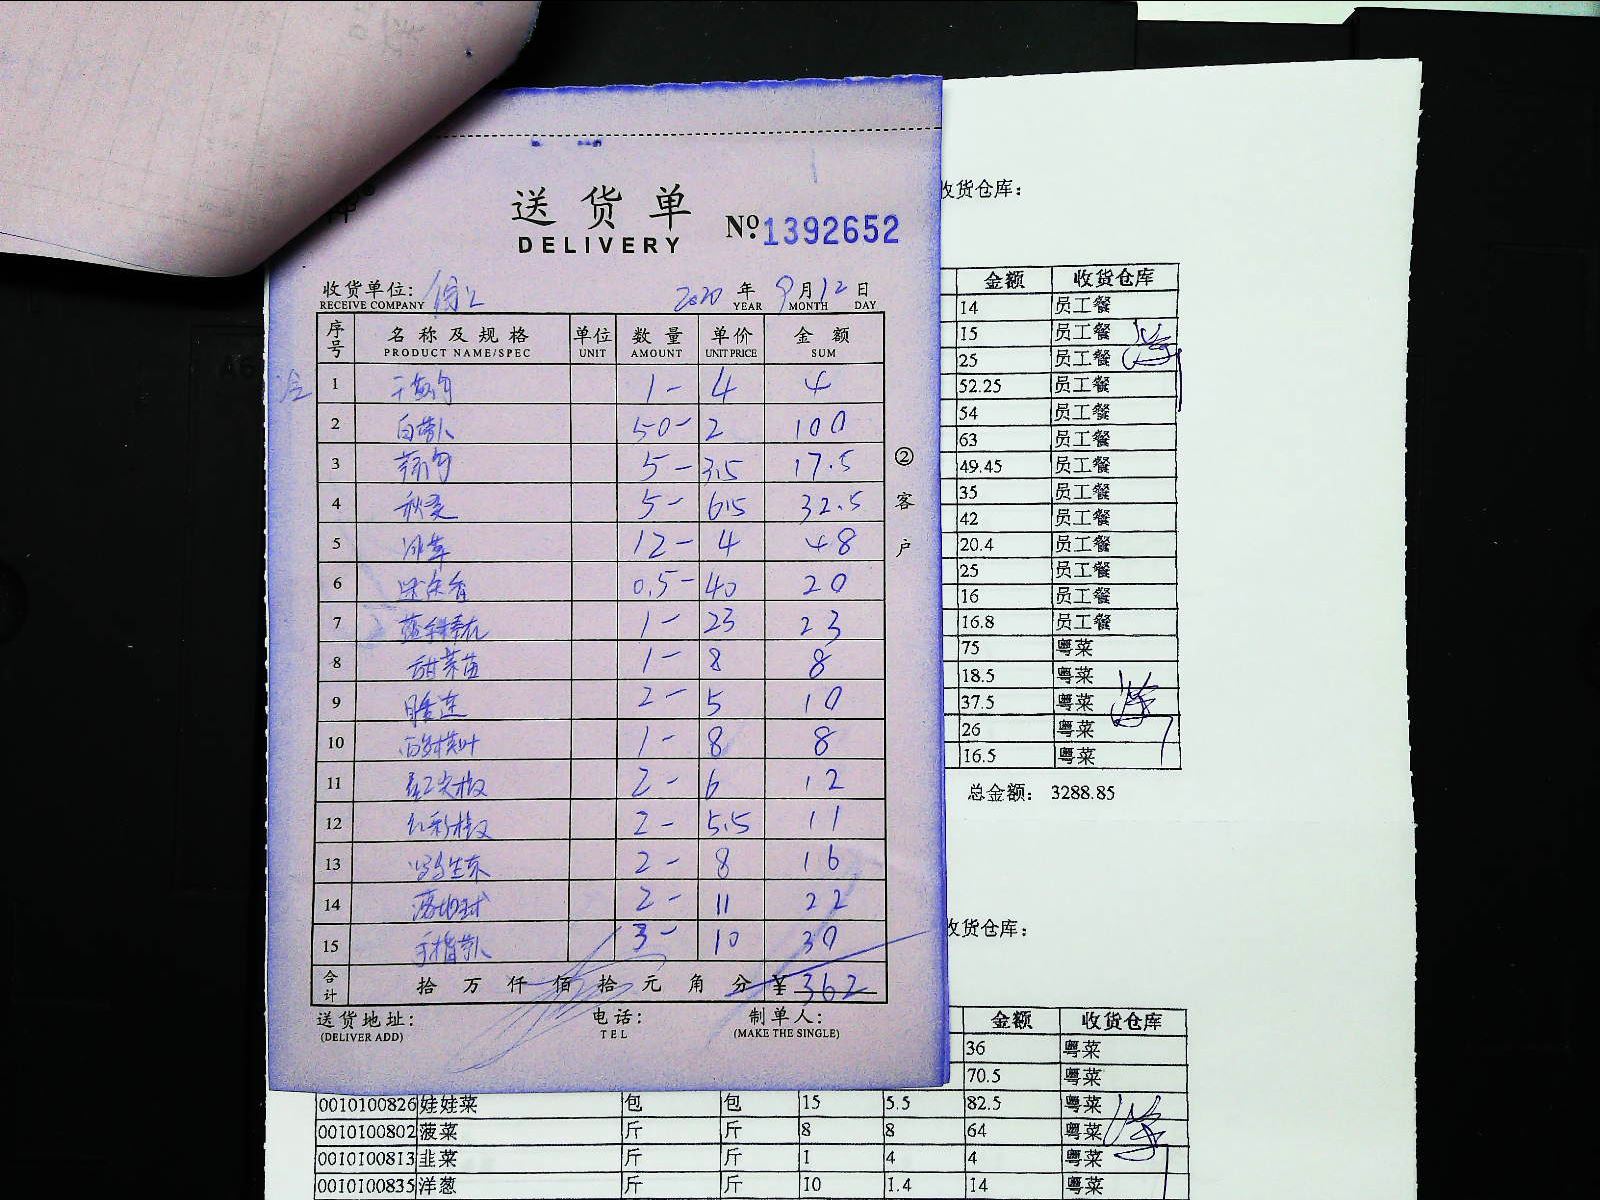 送货单
DELIVERY
№ 1392652
收货单位:
RECEIVE COMPANY
2020 年 9 月 12 日
YEAR MONTH DAY
序号 名称及规格 单位 数量 单价 金额
PRODUCT NAME/SPEC UNIT AMOUNT UNIT PRICE SUM
1 1- 4 4
2 50- 2 100
3 5- 3.5 17.5
4 秋葵 5- 6.5 32.5
5 冰草 12- 4 48
6 迷迭香 0.5- 40 20
7 1- 23 23
8 甜菜苗 1- 8 8
9 2- 5 10
10 1- 8 8
11 红尖椒 2- 6 12
12 红彩椒 2- 5.5 11
13 2- 8 16
14 2- 11 22
15 3- 10 30
合计 拾 万 仟 佰 拾 元 角 分 ¥362
送货地址: 电话: 制单人:
(DELIVER ADD) TEL (MAKE THE SINGLE)
②客户
收货仓库:
金额 收货仓库
14 员工餐
15 员工餐
25 员工餐
52.25 员工餐
54 员工餐
63 员工餐
49.45 员工餐
35 员工餐
42 员工餐
20.4 员工餐
25 员工餐
16 员工餐
16.8 员工餐
75 粤菜
18.5 粤菜
37.5 粤菜
26 粤菜
16.5 粤菜
总金额: 3288.85
收货仓库:
金额 收货仓库
36 粤菜
70.5 粤菜
0010100826 娃娃菜 包 包 15 5.5 82.5 粤菜
0010100802 菠菜 斤 斤 8 8 64 粤菜
0010100813 韭菜 斤 斤 1 4 4 粤菜
0010100835 洋葱 斤 斤 10 1.4 14 粤菜